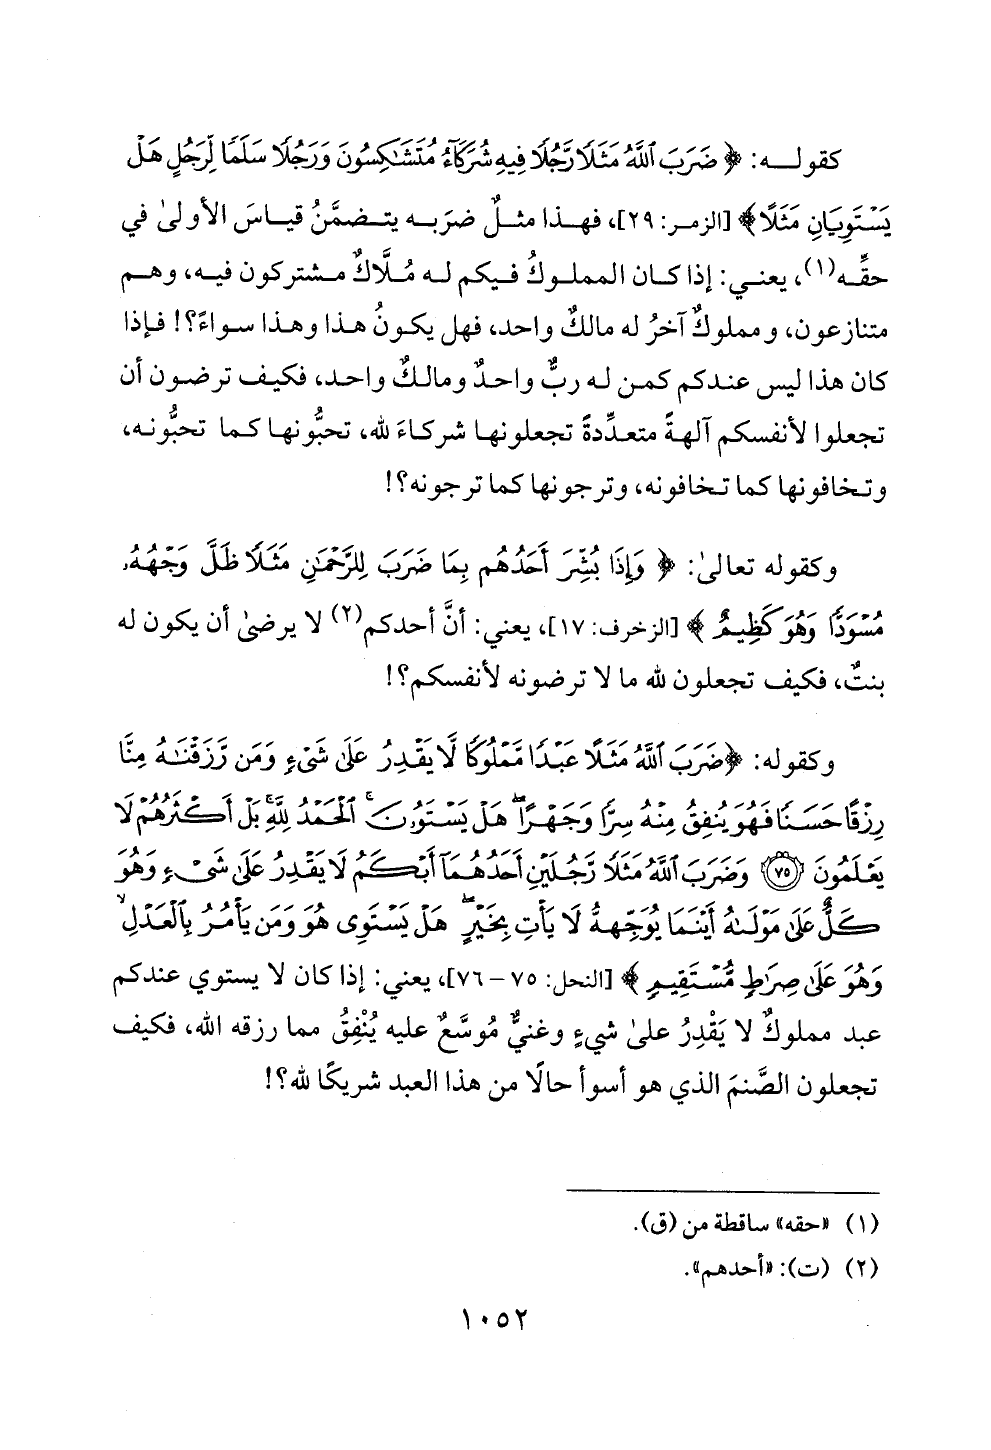 كقولـــه: ﴿ضَرَبَ ٱللَّهُ مَثَلًا رَّجُلًا فِيهِ شُرَكَآءُ مُتَشَٰكِسُونَ وَرَجُلًا سَلَمًا لِّرَجُلٍ هَلْ
يَسْتَوِيَانِ مَثَلًا﴾ [الزمر: ٢٩]، فهذا مثلٌ ضرَبه يتضمَّنُ قياسَ الأولىٰ في
حقِّه(١)، يعني: إذا كان المملوكُ فيكم له مُلَّاكٌ مشتركون فيه، وهم
متنازعون، ومملوكٌ آخرُ له مالكٌ واحد، فهل يكونُ هذا وهذا سواءً؟! فإذا
كان هذا ليس عندكم كمن له ربٌّ واحدٌ ومالكٌ واحد، فكيف ترضون أن
تجعلوا لأنفسكم آلهةً متعدِّدةً تجعلونها شركاءَ لله، تحبُّونها كما تحبُّونه،
وتخافونها كما تخافونه، وترجونها كما ترجونه؟!
وكقوله تعالىٰ: ﴿وَإِذَا بُشِّرَ أَحَدُهُم بِمَا ضَرَبَ لِلرَّحْمَٰنِ مَثَلًا ظَلَّ وَجْهُهُۥ
مُسْوَدًّا وَهُوَ كَظِيمٌ﴾ [الزخرف: ١٧]، يعني: أنَّ أحدكم(٢) لا يرضىٰ أن يكون له
بنتٌ، فكيف تجعلون لله ما لا ترضونه لأنفسكم؟!
وكقوله: ﴿ضَرَبَ ٱللَّهُ مَثَلًا عَبْدًا مَّمْلُوكًا لَّا يَقْدِرُ عَلَىٰ شَىْءٍ وَمَن رَّزَقْنَٰهُ مِنَّا
رِزْقًا حَسَنًا فَهُوَ يُنفِقُ مِنْهُ سِرًّا وَجَهْرًا ۖ هَلْ يَسْتَوُۥنَ ۚ ٱلْحَمْدُ لِلَّهِ ۚ بَلْ أَكْثَرُهُمْ لَا
يَعْلَمُونَ ٧٥ وَضَرَبَ ٱللَّهُ مَثَلًا رَّجُلَيْنِ أَحَدُهُمَآ أَبْكَمُ لَا يَقْدِرُ عَلَىٰ شَىْءٍ وَهُوَ
كَلٌّ عَلَىٰ مَوْلَىٰهُ أَيْنَمَا يُوَجِّههُّ لَا يَأْتِ بِخَيْرٍ ۖ هَلْ يَسْتَوِى هُوَ وَمَن يَأْمُرُ بِٱلْعَدْلِ ۙ
وَهُوَ عَلَىٰ صِرَٰطٍ مُّسْتَقِيمٍ﴾ [النحل: ٧٥ – ٧٦]، يعني: إذا كان لا يستوي عندكم
عبد مملوكٌ لا يَقْدِرُ علىٰ شيءٍ وغنيٌّ مُوسَّعٌ عليه يُنْفِقُ مما رزقه الله، فكيف
تجعلون الصَّنمَ الذي هو أسوأ حالًا من هذا العبد شريكًا لله؟!
(١) «حقه» ساقطة من (ق).
(٢) (ت): «أحدهم».
١٠٥٢